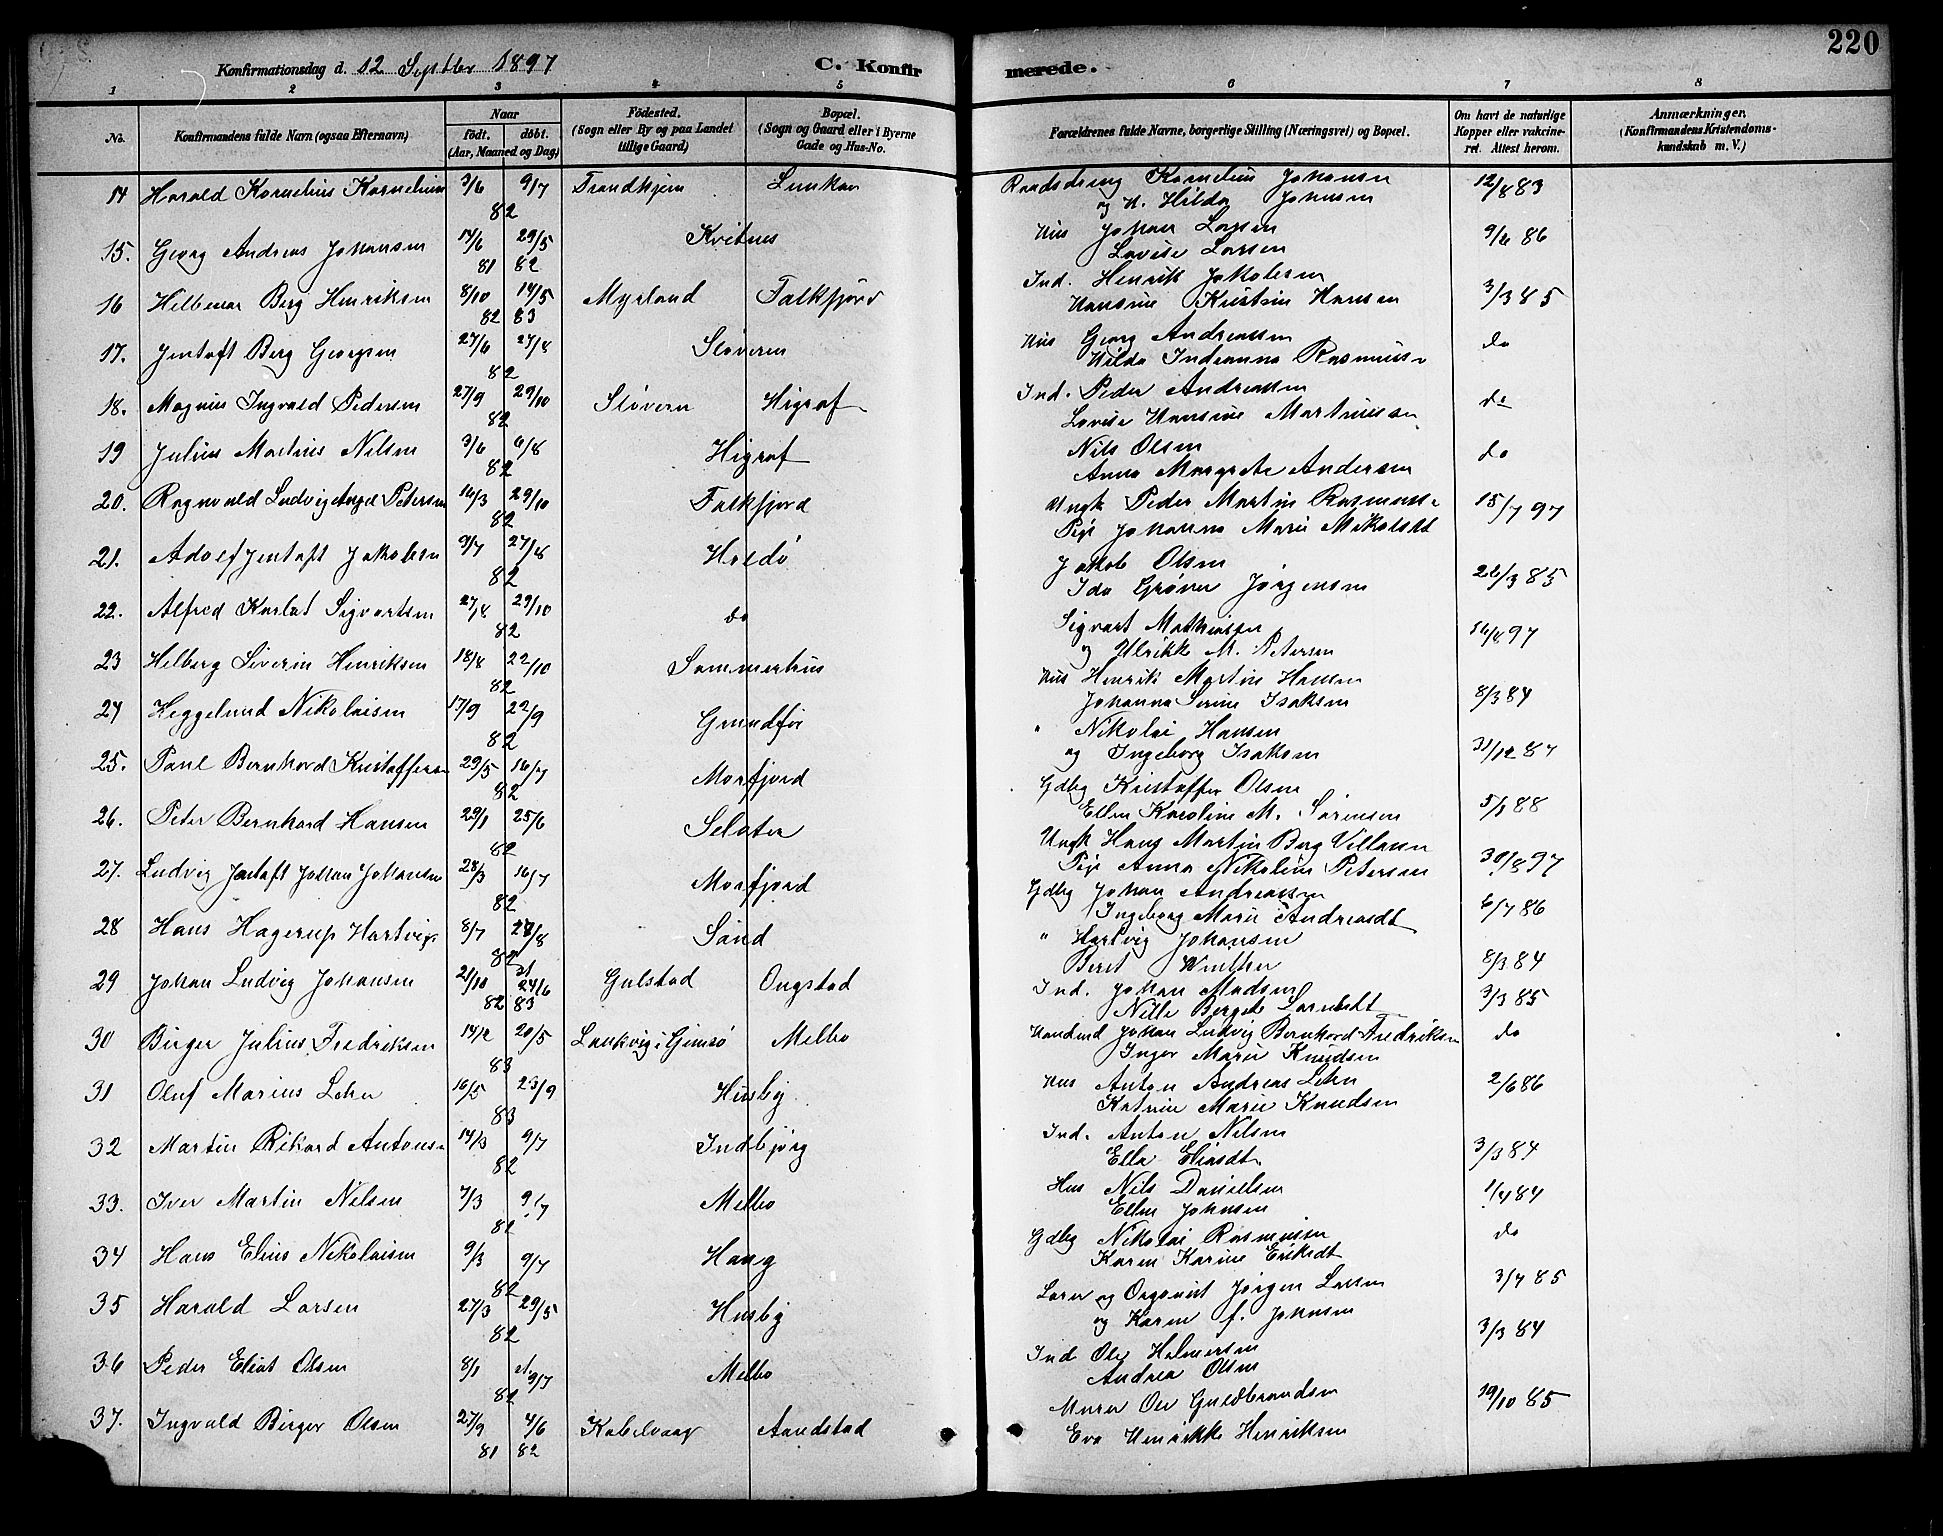 220
Konfirmationsdag d. 12 Septbr 1897 C. Konfirmerede.
1 2 3 4 5 6 7 8
No. Konfirmandens fulde Navn (ogsaa Efternavn) Naar født. døbt. (Aar, Maaned og Dag) Fødested. (Sogn eller By og paa Landet tillige Gaard) Bopæl. (Sogn og Gaard eller i Byerne Gade og Hus-No. Forældrenes fulde Navne, borgerlige Stilling (Næringsvei) og Bopæl. Om havt de naturlige Kopper eller vakcineret. Attest herom. Anmærkninger. (Konfirmandens Kristendomskundskab m. V.)
14 Harald Kornelius Kornelius 3/6 9/7 82 Trondhjem Kornelius Johansen 12/8 83
og H. Hilda Johnsen
15. Georg Andreas Johansen 14/6 81 29/5 82 Kvitnes Hus Johan Larsen 9/6 86
Lovise Larsen
16 Hilbenar Berg Henriksen 8/10 82 14/5 83 Myrland Falkfjord Ind. Henrik Jakobsen 3/3 85
Hansine Kristine Hansen
17. Jentoft Berg Georgsen 27/6 27/8 82 Sløveren Hus Georg Andreassen do
Hilda Indianna Rasmuss
18. Magnus Ingvald Pedersen 27/9 29/10 82 Sløvern Higraf Ind. Peder Andreassen do
Lovise Hansine Martinussen
19 Julius Martius Nilsen 3/6 6/8 82 Higraf Nils Olsen do
Anna Margrete Andersen
20. Ragnvald Ludvig Angel Petersen 16/3 29/10 82 Falkfjord Ungk Peder Martin Rasmuss 15/7 97
Pige Johanna Marie Mikalsdt
21. Adolf Jentoft Jakobsen 9/7 27/8 82 Holdø Jakob Olsen 26/3 85
Ida Grøner Jørgensen
22. Alfred Karlot Sigvartsen 27/8 29/10 82 do Sigvart Mathiassen 16/8 97
og Ulrikke M. Petersen
23 Helberg Siverin Henriksen 18/8 22/10 82 Sommerhus Hus Henrik Martin Hansen 8/3 84
Johanna Serine Isaksen
24 Heggelund Nikolaisen 17/9 22/9 82 Grundfør " Nikolai Hansen 31/12 87
og Ingeborg Isaksen
25. Paul Bernhard Kristoffersen 29/5 16/7 82 Morfjord Gdbg Kristoffer Olsen 5/8 88
Ellen Karoline M. Sørensen
26. Peter Bernhard Hansen 29/1 25/6 82 Selater Ungk Hans Martin Berg Villassen 30/8 97
Pige Anna Nikoline Petersen
27. Ludvig Jentoft Johan Johansen 28/3 16/7 82 Morfjord Gdbg Johan Andreassen 6/7 86
Ingeborg Marie Andreasdt
28 Hans Hagerup Hartvigs 8/7 27/8 82 Sand " Hartvig Johansen 8/3 84
Beret Winther
29 Johan Ludvig Johansen 21/10 82 24/6 83 Gulstad Ongstad Ind. Johan Madsen 3/3 85
Nille Bergete Larsdt
30 Birger Julius Fredriksen 14/2 20/5 83 Laukvig i Gimsø Melbo Johan Ludvig Bernhard Fredriksen do
Inger Marie Knudsen
31 Oluf Marius Lehn 16/5 23/9 83 Husby Hus Anton Andreas Lehn 2/6 86
Katrine Marie Knudsen
32 Martin Rikard Antons 14/3 9/7 82 Indbjørg Ind. Anton Nilsen 3/3 84
Ella Eliasdt
33. Iver Martin Nilsen 7/3 9/7 82 Melbo Hus Nils Danielsen 1/4 84
Ellen Johnsen
34 Hans Elius Nikolaisen 9/3 9/7 82 Haug Gdbg Nikolai Rasmussen do
Karen Karine Eriksdt
35 Harald Larsen 27/3 29/5 82 Husby Lærer og Organist Jørgen Larsen 3/7 85
og Karen f. Johnsen
36 Peder Eliot Olsen 8/1 9/7 82 Melbo Ind Ole Helmersen 3/3 84
Andrea Olsen
37. Ingvald Birger Olsen 27/9 81 4/6 82 Kabelvaag Aandstad Murer Ole Guldbrandsen 19/10 85
Eva Henrikke Henriksen